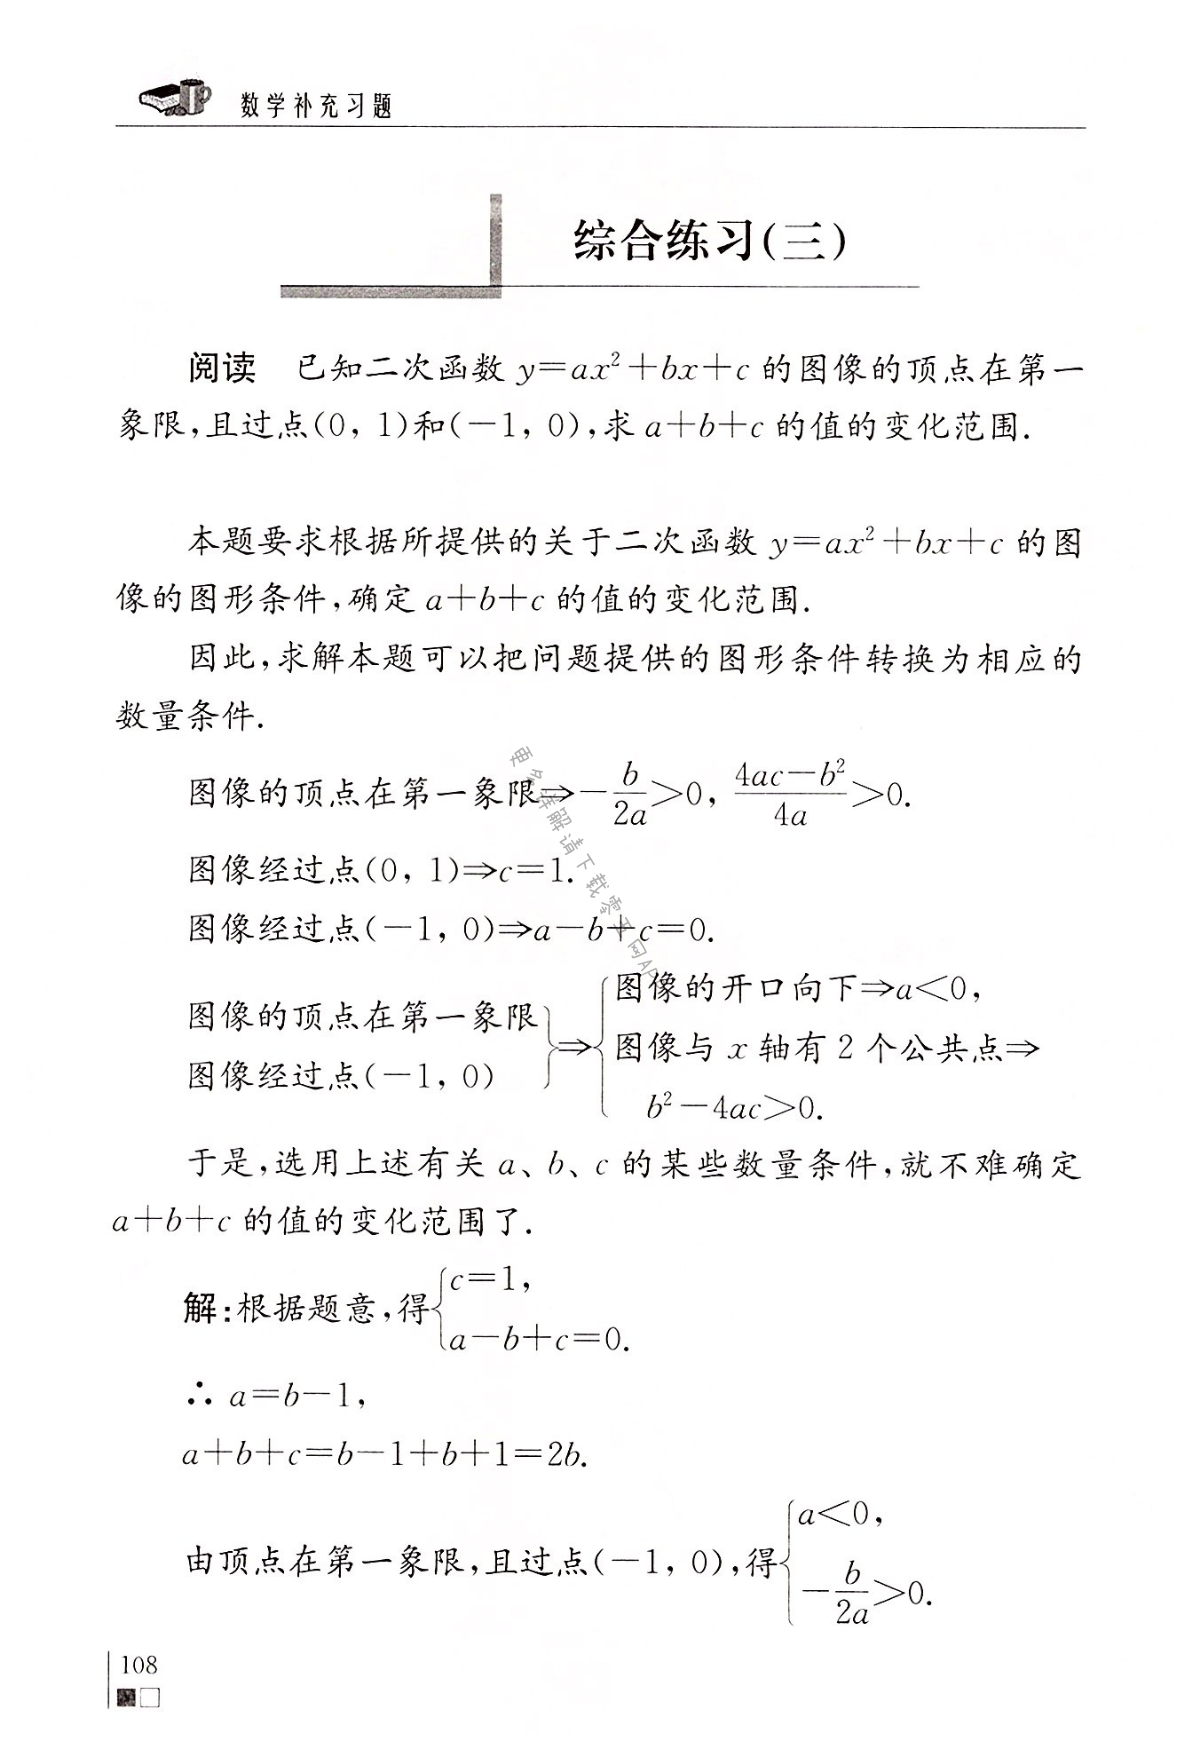 数学补充习题
综合练习(三)
阅读 已知二次函数 y=ax²+bx+c 的图像的顶点在第一
象限,且过点(0, 1)和(-1, 0),求 a+b+c 的值的变化范围.
本题要求根据所提供的关于二次函数 y=ax²+bx+c 的图
像的图形条件,确定 a+b+c 的值的变化范围.
因此,求解本题可以把问题提供的图形条件转换为相应的
数量条件.
图像的顶点在第一象限⇒-b/2a>0, (4ac-b²)/4a>0.
图像经过点(0, 1)⇒c=1.
图像经过点(-1, 0)⇒a-b+c=0.
图像的顶点在第一象限
图像经过点(-1, 0)
}⇒{
图像的开口向下⇒a<0,
图像与 x 轴有 2 个公共点⇒
b²-4ac>0.
于是,选用上述有关 a、b、c 的某些数量条件,就不难确定
a+b+c 的值的变化范围了.
解:根据题意,得{c=1,
a-b+c=0.
∴ a=b-1,
a+b+c=b-1+b+1=2b.
由顶点在第一象限,且过点(-1, 0),得{a<0,
-b/2a>0.
108